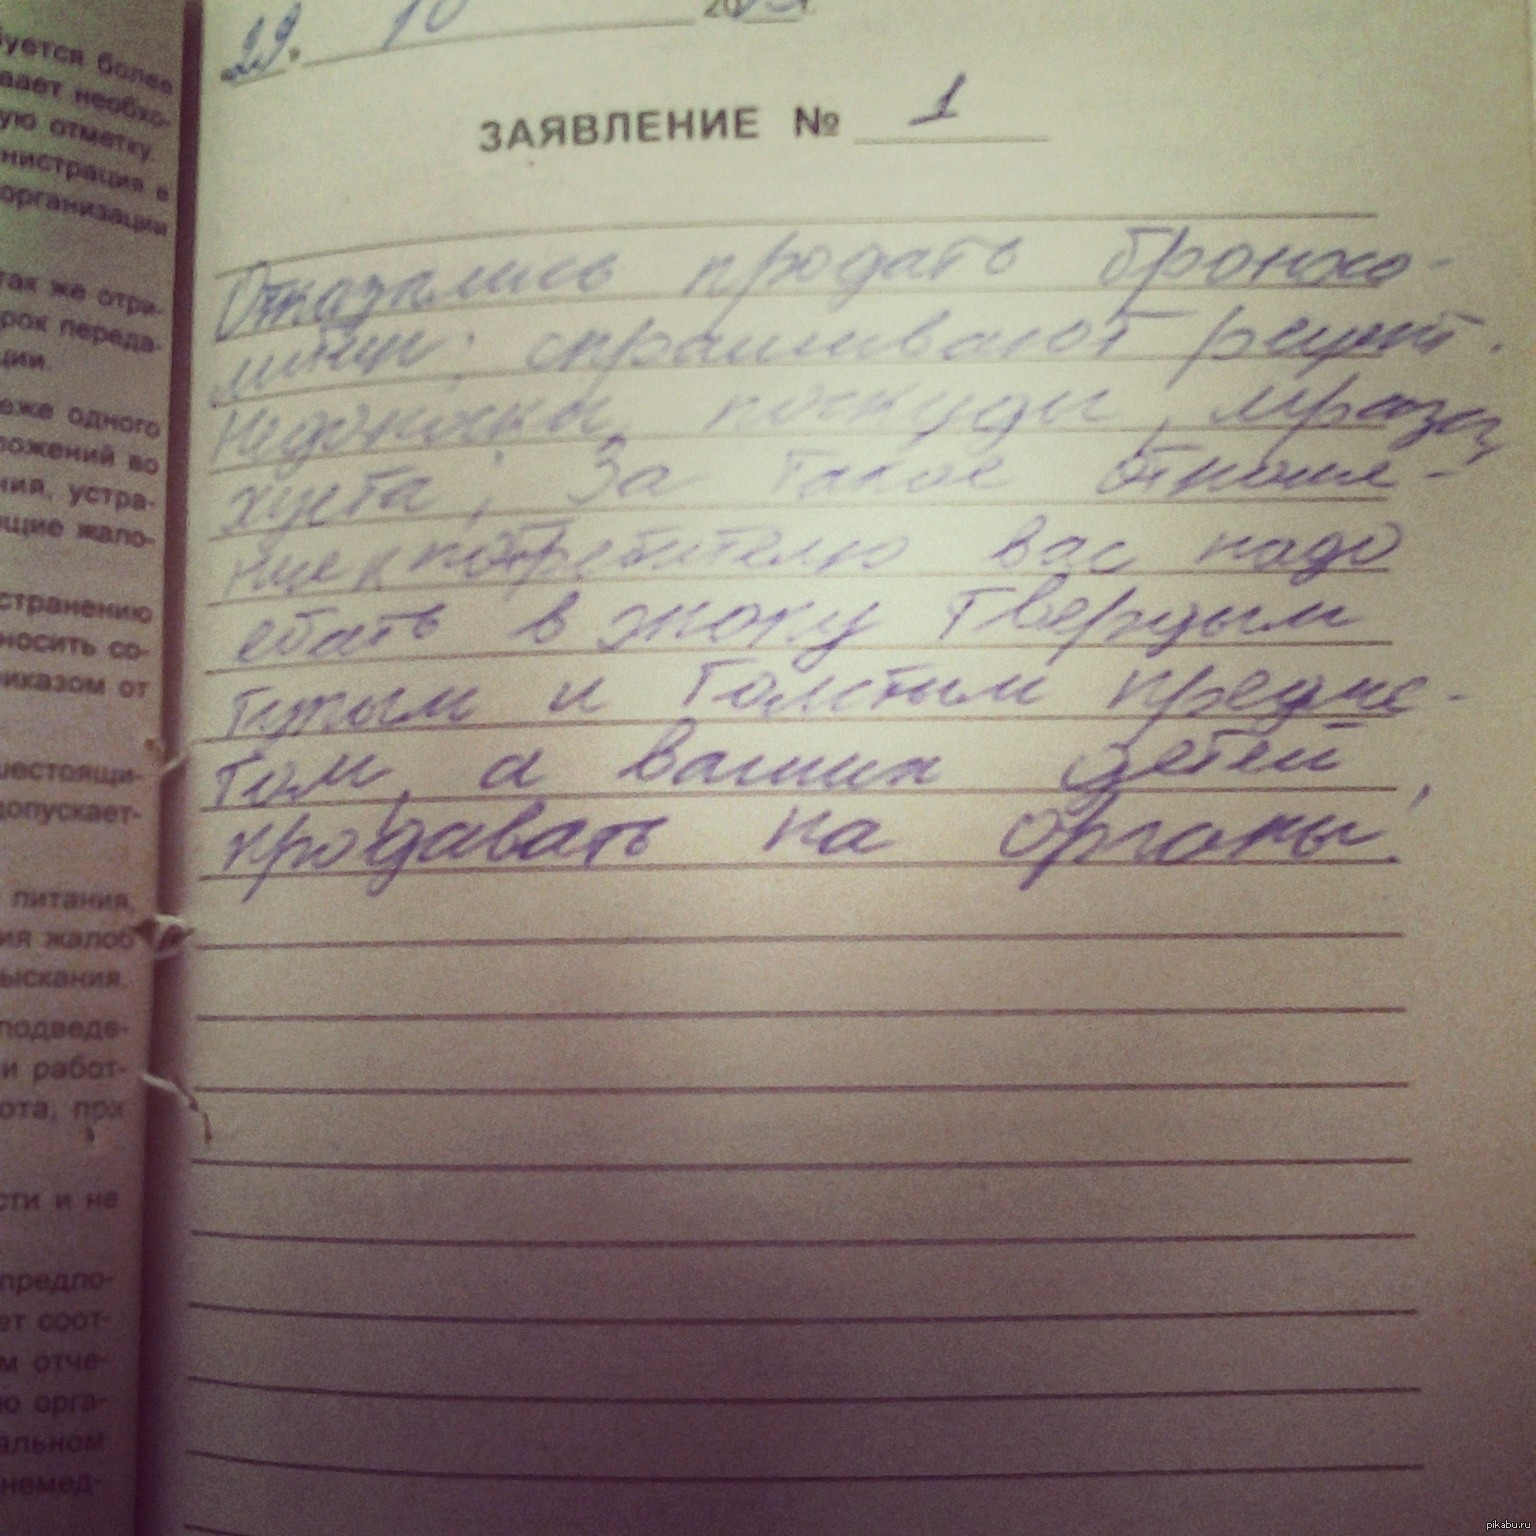 уется более
вает необхо-
ую отметку.
нистрация в
организации
так же отри-
рок переда-
ции.
еже одного
ложений во
ния, устра-
ющие жало-
странению
носить со-
риказом от
шестоящи-
допускает-
питания,
ия жалоб
зыскания.
подведе-
и работ-
ота, при
сти и не
предло-
ет соот-
м отче-
ю орга-
альном
немед-
29. 10 20
ЗАЯВЛЕНИЕ № 1
Отказались продать бронхо-
литин; спрашивают рецепт.
Недоноски, паскуды, мрази,
хуета; За такое отноше-
ние к потребителю вас надо
ебать в жопу твердым
тупым и толстым предме-
том, а ваших детей,
продавать на органы.
pikabu.ru